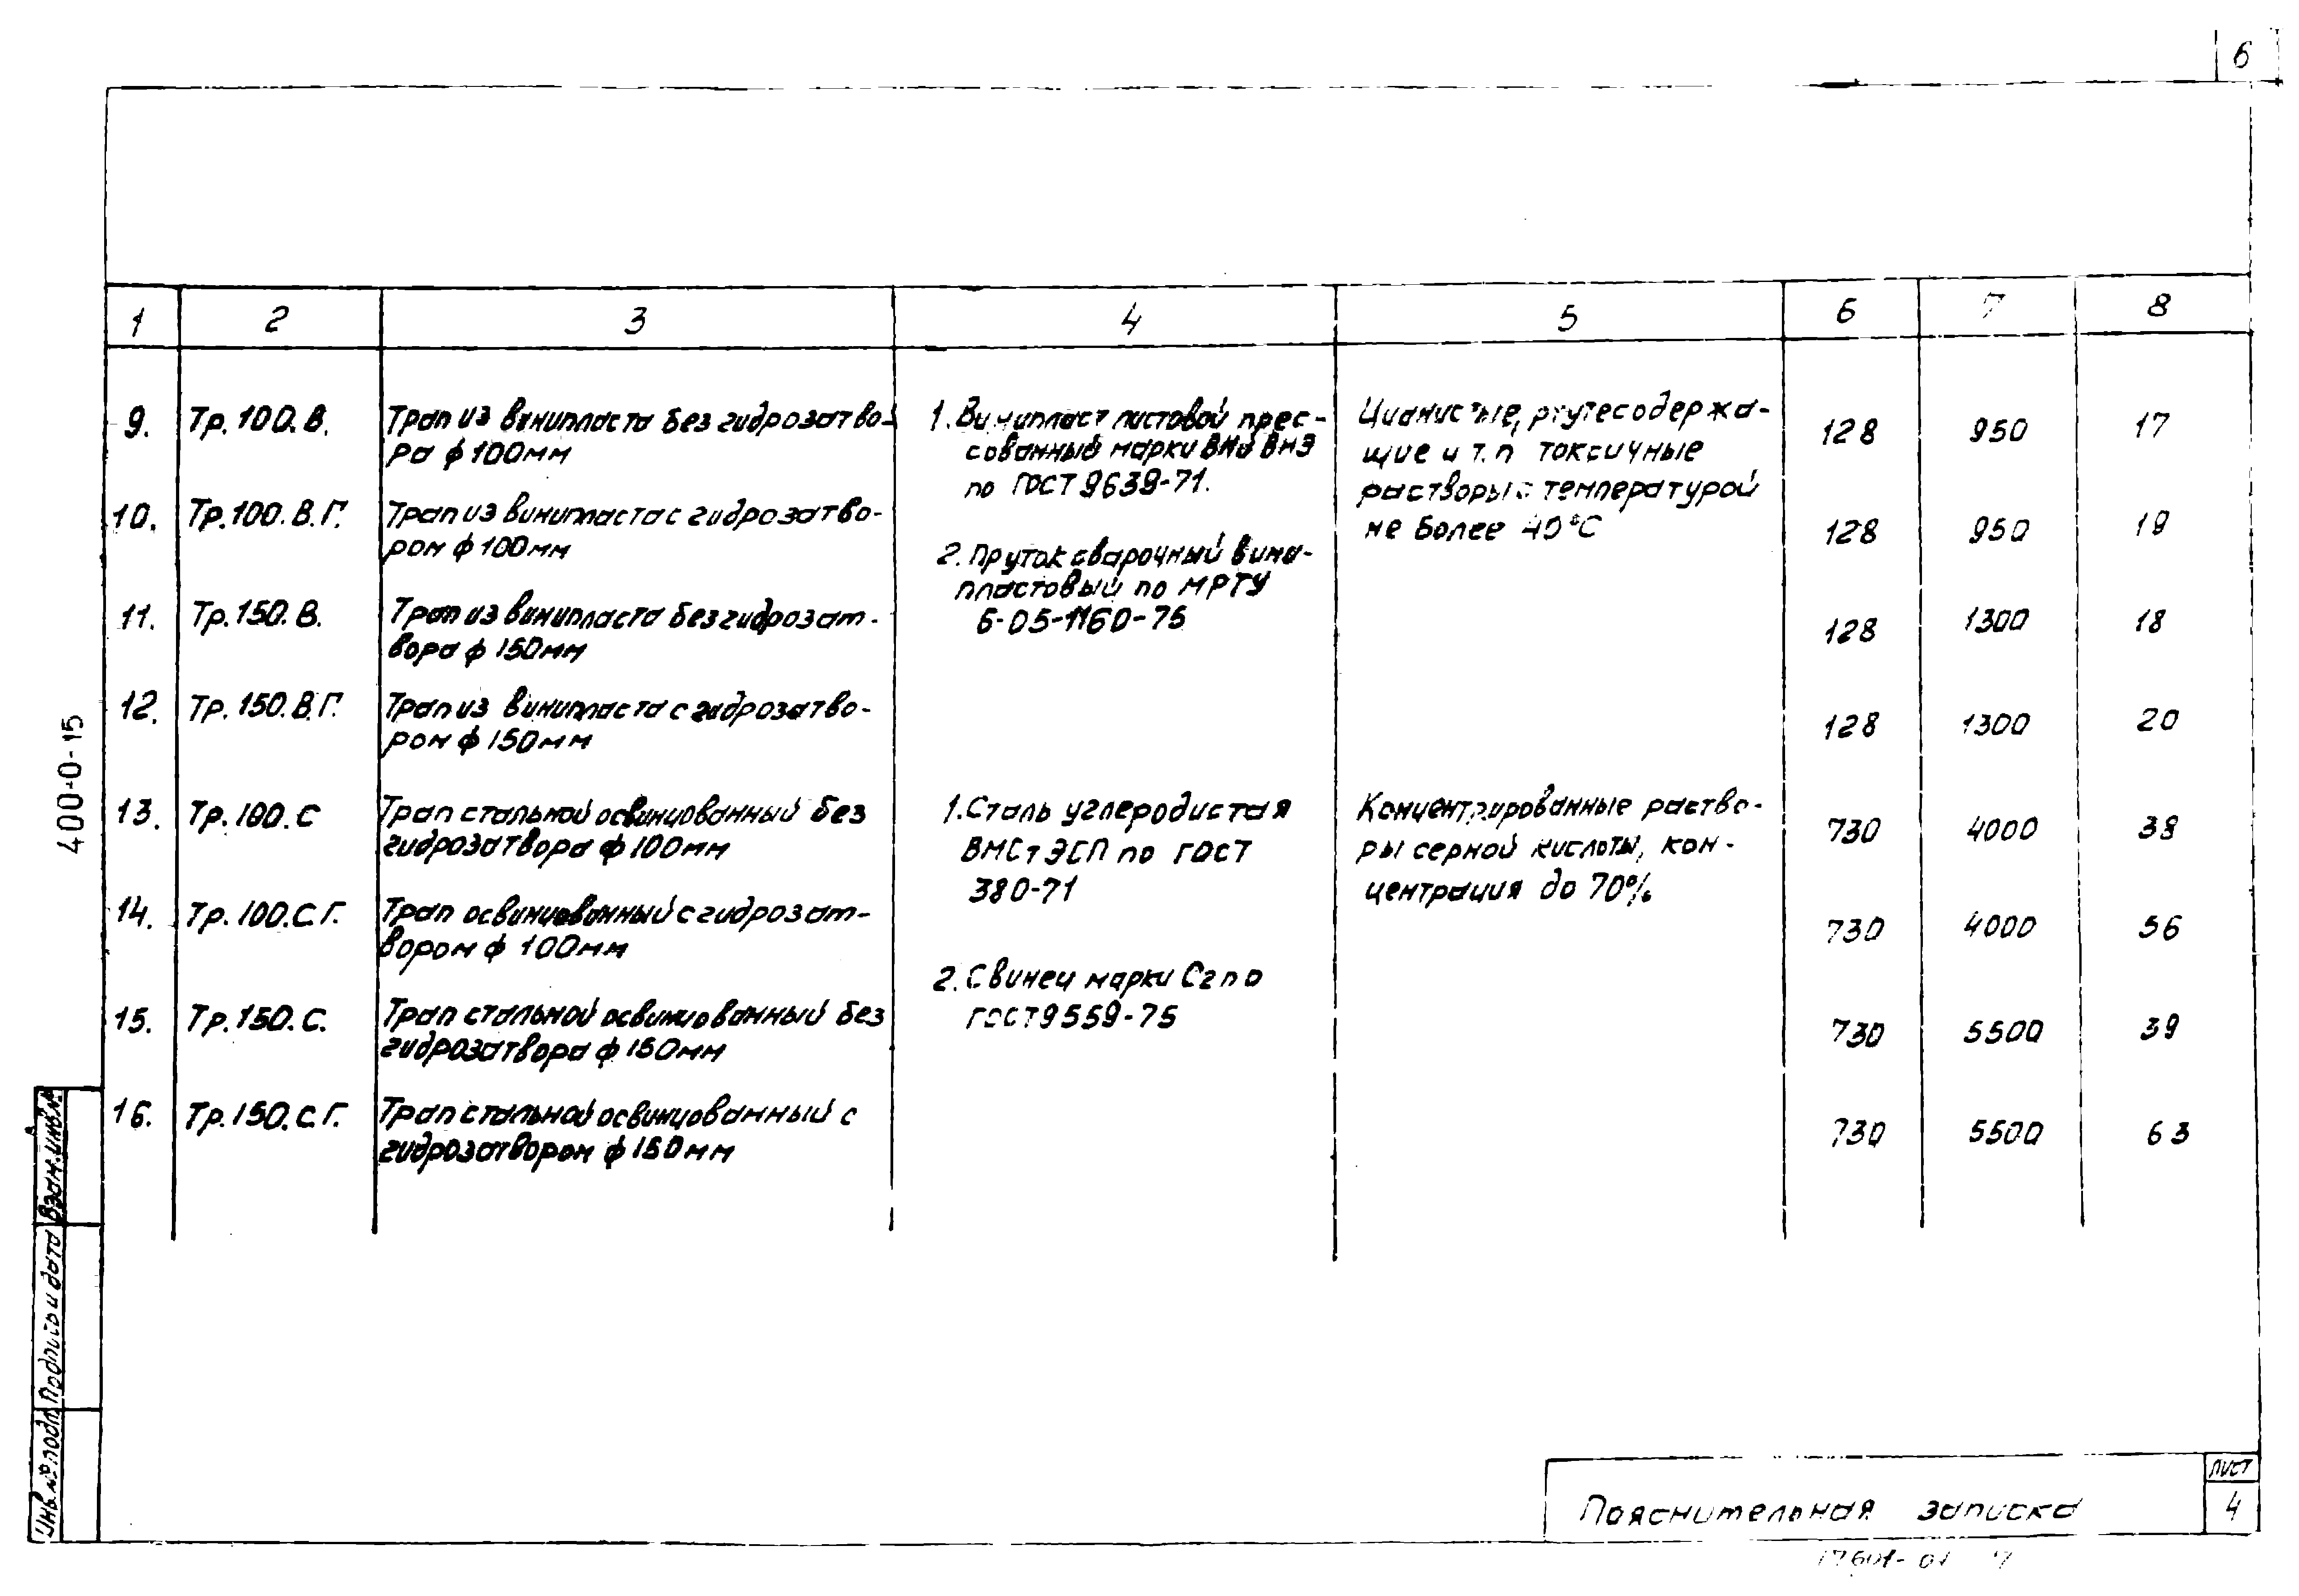 6
1 2 3 4 5 6 7 8
9. Тр. 100. В. Трап из винипласта без гидрозатво-
ра ф 100мм
1. Винипласт листовой прес-
сованный марки ВН и ВНЭ
по ГОСТ 9639-71.
Цианистые, ртутесодержа-
щие и т.п токсичные
растворы с температурой
не более 40°С
128 950 17
10. Тр. 100. В. Г. Трап из винипласта с гидрозатво-
ром ф 100мм
2. Пруток сварочный вини-
пластовый по МРТУ
6-05-1160-75
128 950 19
11. Тр. 150. В. Трап из винипласта без гидрозат-
вора ф 150мм
128 1300 18
12. Тр. 150. В. Г. Трап из винипласта с гидрозатво-
ром ф 150мм
128 1300 20
13. Тр. 100. С Трап стальной освинцованный без
гидрозатвора ф 100мм
1. Сталь углеродистая
ВМСт3СП по ГОСТ
380-71
Концентрированные раство-
ры серной кислоты, кон-
центрация до 70%
730 4000 38
14. Тр. 100. С Г. Трап освинцованный с гидрозат-
вором ф 100мм
2. Свинец марки С2 по
ГОСТ 9559-75
730 4000 56
15. Тр. 150. С. Трап стальной освинцованный без
гидрозатвора ф 150мм
730 5500 39
16. Тр. 150. С Г. Трап стальной освинцованный с
гидрозатвором ф 150мм
730 5500 63
400-0-15
Взам. инв. №
Подпись и дата
Инв. № подл.
Пояснительная записка
лист
4
17601-01 7